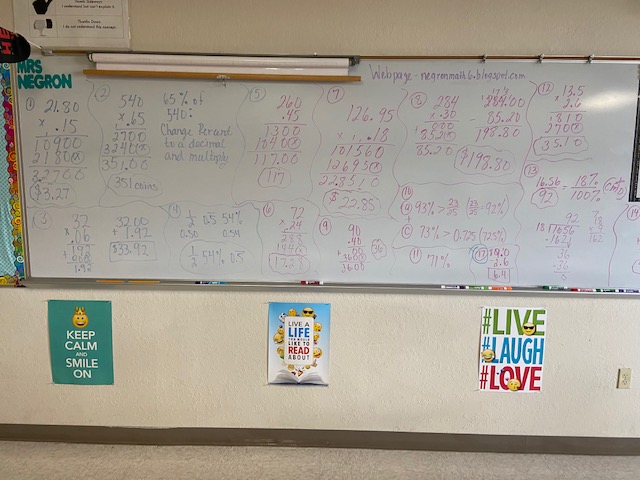 I understand but can't explain it.
Thumbs Down:
I do not understand this concept
MRS
NEGRON
Webpage - negronmath6.blogspot.com
①
21.80
x .15
10900
21800
32700
$3.27
②
540
x .65
2700
32400
351.00
351 coins
65% of
540:
Change Percent
to a decimal
and multiply
③
32
x .06
1.92
32.00
+ 1.92
$33.92
④
1/2 0.5 54%
0.50 0.54
1/2 54% 0.5
⑤
260
.45
1300
10400
117.00
117
⑥
72
x .24
288
1440
1728
⑦
126.95
x .18
101560
126950
228510
$22.85
⑧
284
x .30
000
+ 85.20
85.20
284.00
- 85.20
198.80
$198.80
⑨
90
.40
00
+ 3600
3600
36
⑩
A 93% > 23/25 (23/25 = 92%)
C 73% > 0.725 (72.5%)
⑪ 71%
⑫
13.5
x 2.6
810
2700
35.10
⑬
16.56
92
= 18%
100%
92
18 1656
- 162
36
- 36
⑭
6.4
KEEP
CALM
AND
SMILE
ON
LIVE A
LIFE
YOU WOULD
LIKE TO
READ
ABOUT
#LIVE
#LAUGH
#LOVE